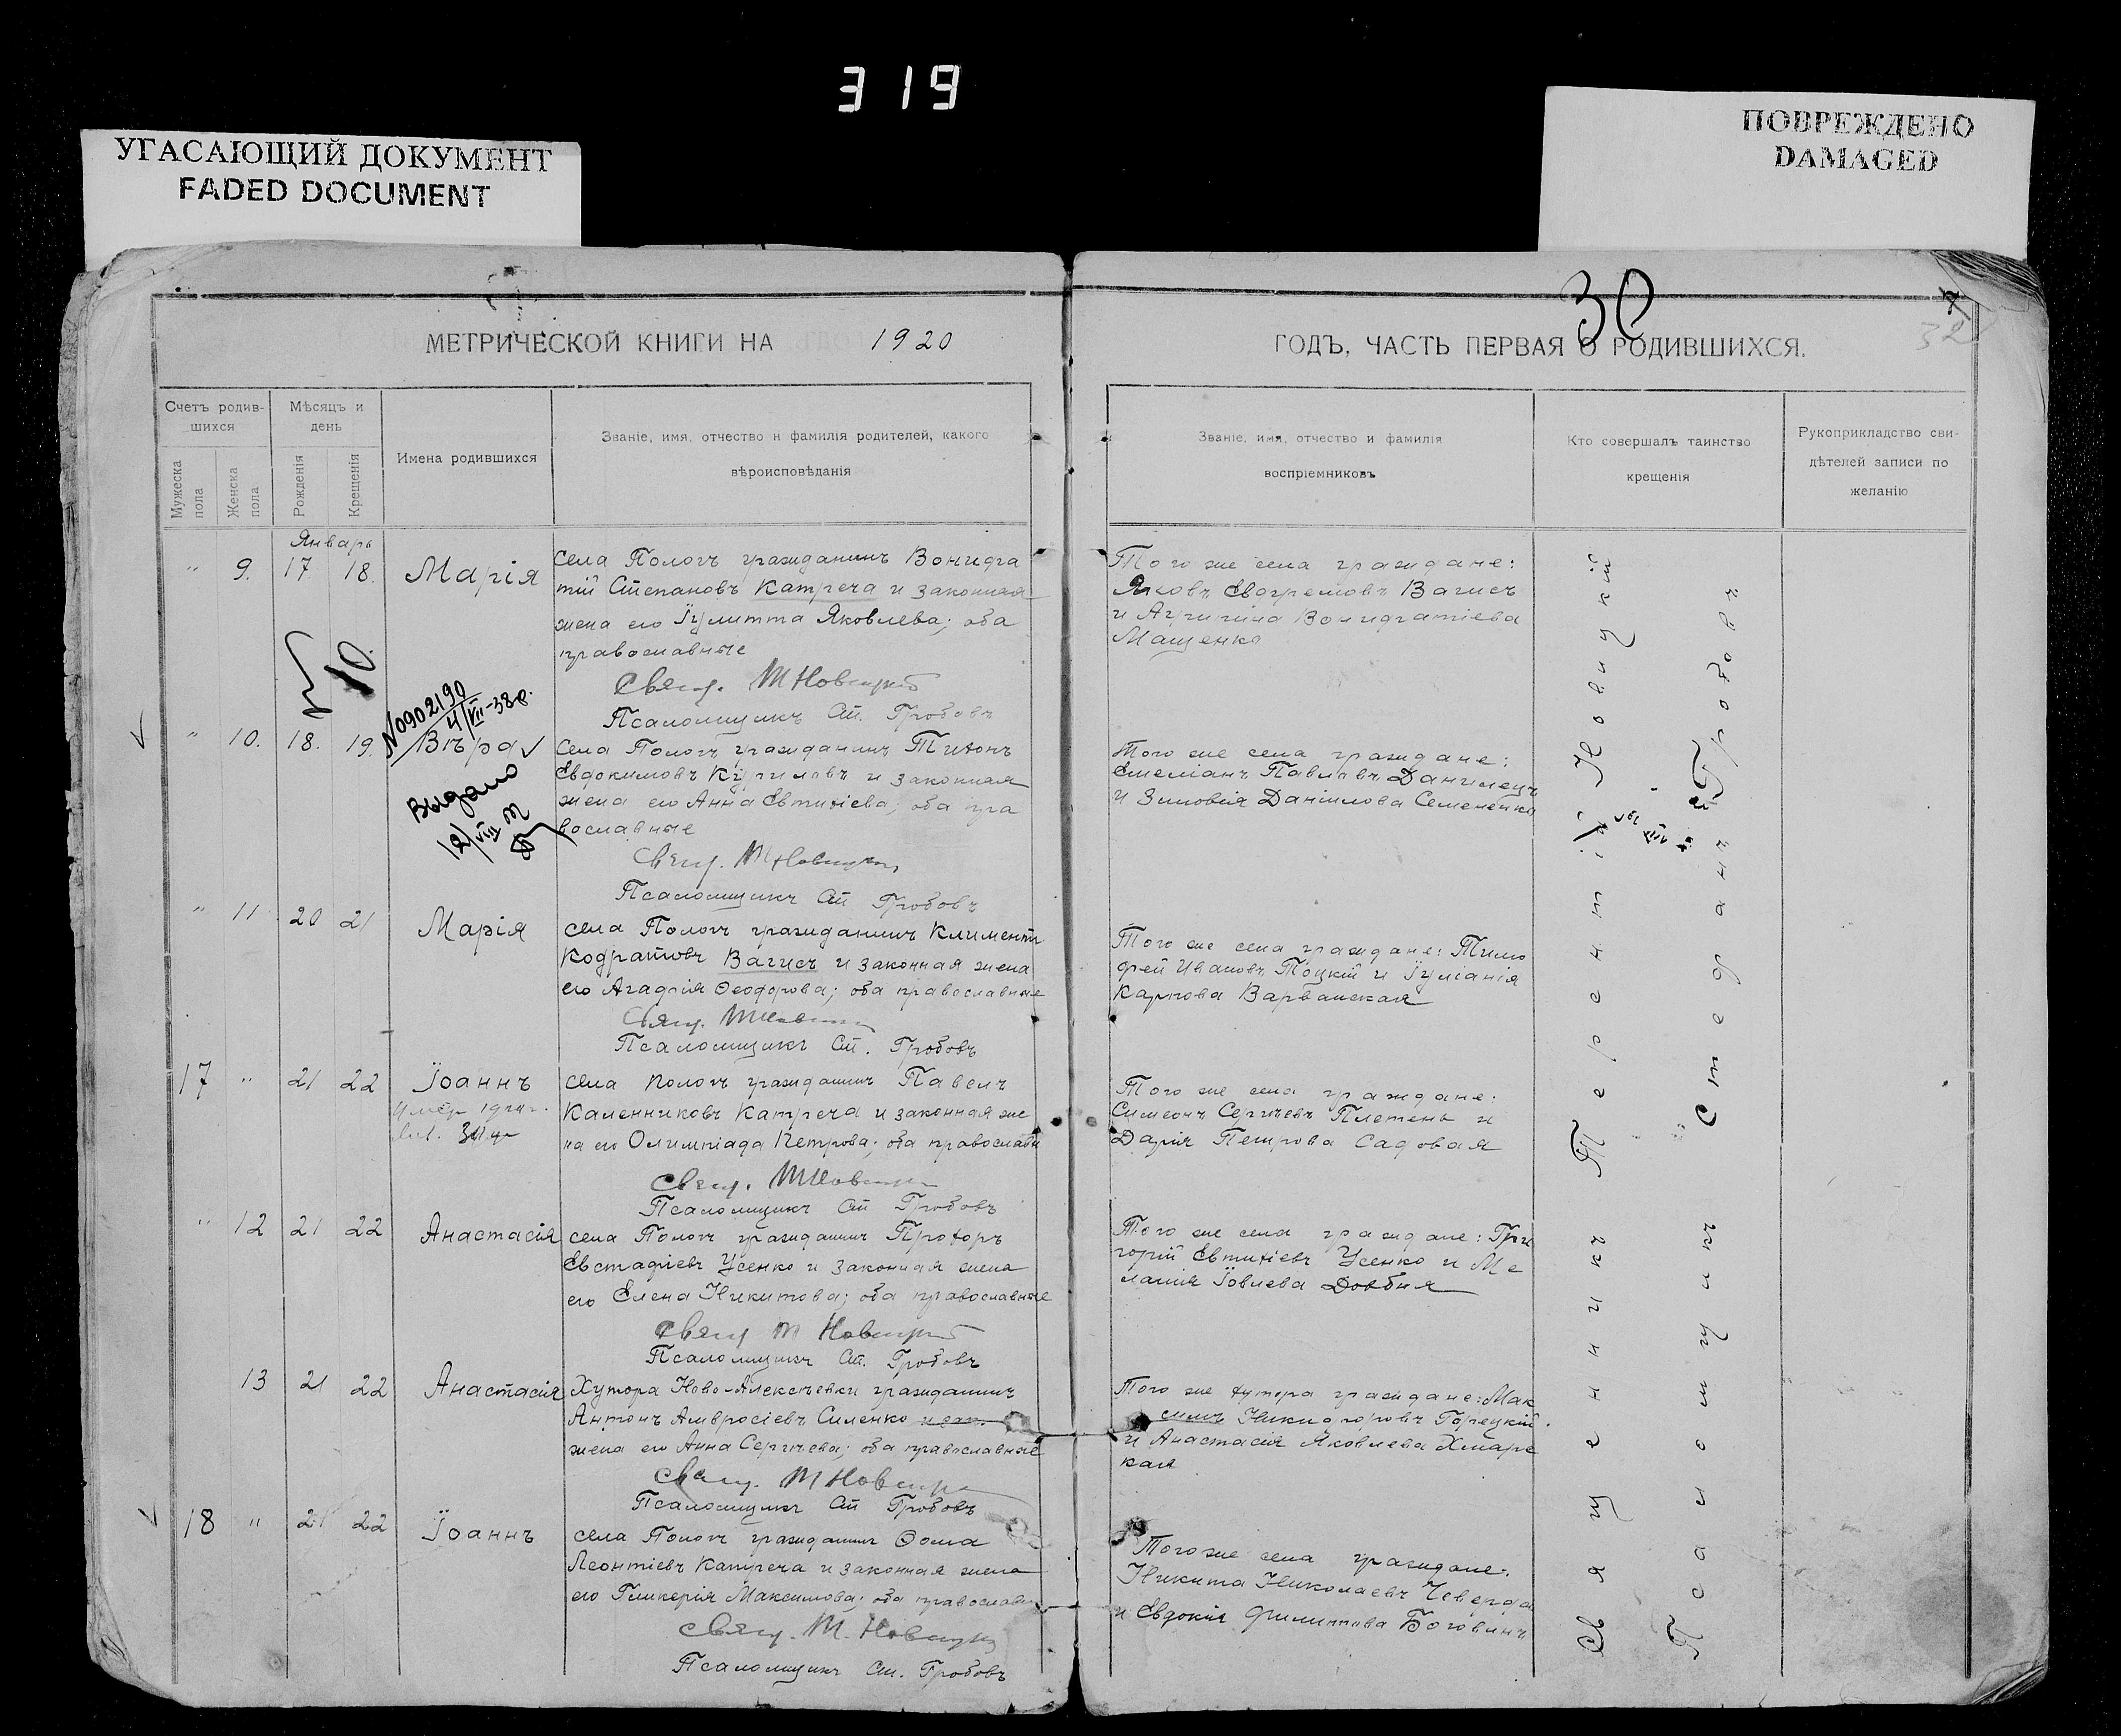 319
УГАСАЮЩИЙ ДОКУМЕНТ
FADED DOCUMENT
ПОВРЕЖДЕНО
DAMAGED
30
32
МЕТРИЧЕСКОЙ КНИГИ НА 1920
ГОДЪ, ЧАСТЬ ПЕРВАЯ О РОДИВШИХСЯ.
Счетъ родив-
шихся
Мужеска
пола
Женска
пола
Мѣсяцъ и
день
Рожденія
Крещенія
Имена родившихся
Званіе, имя, отчество и фамилія родителей, какого
вѣроисповѣданія
Званіе, имя, отчество и фамилія
воспріемниковъ
Кто совершалъ таинство
крещенія
Рукоприкладство сви-
дѣтелей записи по
желанію
Январь
" 9. 17 18. Марія
Села Пологъ гражданинъ Вонифа
тій Степановъ Катреча и законная
жена его Іулитта Яковлева; оба
православные
Свящ. Т Новицкій
Псаломщикъ Ст. Гробовъ
Того же села граждане:
Яковъ Евфремовъ Вагисъ
и Вонифатіева
Мащенко
10.
№0902190
4/VII-38
" 10. 18. 19. Вѣра
Выдано
12/VIII
Села Пологъ гражданинъ Тихонъ
Евдокимовъ Куриловъ и законная
жена его Анна Евтихіева; оба пра
вославные
Свящ. Т Новицкій
Псаломщикъ Ст Гробовъ
Того же села граждане:
Емеліанъ Павловъ Данилецъ
и Зиновія Даніилова Семененко
" 11 20 21 Марія
села Пологъ гражданинъ Климентъ
Кодратовъ Вагисъ и законная жена
его Агафія Ѳеодорова; оба православные
Свящ. Т Новицкій
Псаломщикъ Ст. Гробовъ
Того же села граждане: Тимо
фей Ивановъ Тоцкій и Іуліанія
Карпова Варванская
17 " 21 22 Іоаннъ
села Пологъ гражданинъ Павелъ
Каленниковъ Катреча и законная же
на его Олимпіада Петрова; оба православн
Свящ. Т Новицкій
Псаломщикъ Ст Гробовъ
Того же села граждане:
Симеонъ Сергіевъ Плетень и
Дарія Петрова Садовая
" 12 21 22 Анастасія
села Пологъ гражданинъ Прохоръ
Евстафіевъ Усенко и законная жена
его Елена Никитова; оба православные
Свящ Т Новицкій
Псаломщикъ Ст. Гробовъ
Того же села граждане: Гри
горій Евтихіевъ Усенко и Ме
ланія Іовлева Довбня
13 21 22 Анастасія
Хутора Ново-Алексѣевки гражданинъ
Антонъ Амвросіевъ Силенко
жена его Анна Сергѣева; оба православные
Свящ. Т Новицкій
Псаломщикъ Ст Гробовъ
Того же хутора граждане: Мак
симъ Никифоровъ Горецкій
и Анастасія Яковлева Хмарс
кая
18 " 21 22 Іоаннъ
села Пологъ гражданинъ Ѳома
Леонтіевъ Катреча и законная жена
его Гликерія Максимова; оба православн
Свящ. Т. Новицкій
Псаломщикъ Ст. Гробовъ
Того же села граждане:
Никита Николаевъ Чеверда
и Евдокія Филиппова Боговинъ
Священникъ Терентій Новицкій
Псаломщикъ Стефанъ Гробовъ